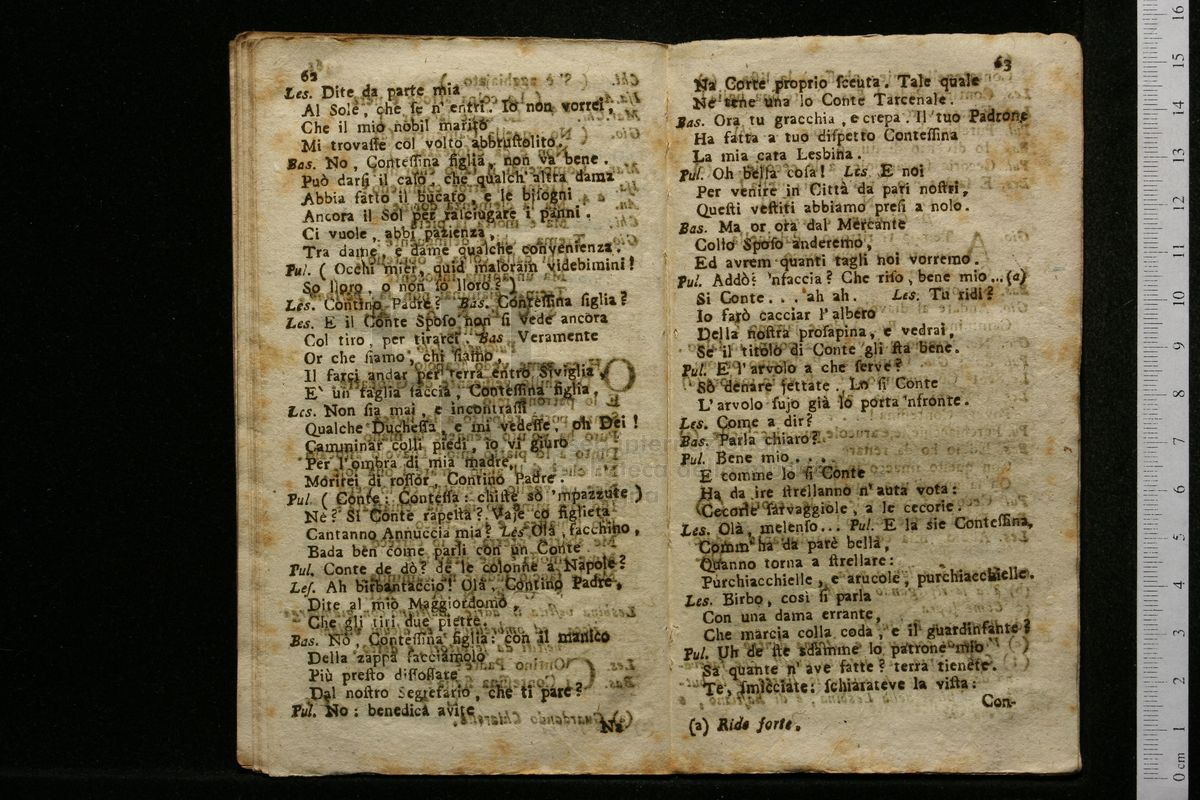 62
Les. Dite da parte mia
Al Sole, che se n' entri. Io non vorrei,
Che il mio nobil marito
Mi trovasse col volto abbrustolito.
Bas. No, Contessina figlia, non va bene.
Può darsi il caso, che qualch' altra dama
Abbia fatto il bucato, e le bisogni
Ancora il Sol per rasciugare i panni.
Ci vuole, abbi pazienza,
Tra dame, e dame qualche convenienza.
Pul. ( Occhi miei, quid maloram videbimini!
So lloro, o non so lloro? )
Les. Contino Padre? Bas. Contessina figlia?
Les. E il Conte Sposo non si vede ancora
Col tiro, per tirarci. Bas Veramente
Or che siamo, chi siamo,
Il farci andar per terra entro Siviglia,
E' un taglia faccia, Contessina figlia,
Les. Non sia mai, e incontrassi
Qualche Duchessa, e mi vedesse, oh Dei!
Camminar colli piedi, io vi giuro
Per l'ombra di mia madre,
Morirei di rossor, Contino Padre.
Pul. ( Conte: Contessa: chiste sò 'mpazzute )
Nè? Si Conte rapesta? Vaje co figlieta
Cantanno Annuccia mia? Les Olà, facchino,
Bada ben come parli con un Conte
Pul. Conte de dò? de le colonne a Napole?
Les. Ah birbantaccio! Olà, Contino Padre,
Dite al mio Maggiordomo,
Che gli tiri due pietre.
Bas. No, Contessina figlia: con il manico
Della zappa facciamolo
Più presto dissossare
Dal nostro Segretario, che ti pare?
Pul. No: benedica avite
Na
63
Na Corte proprio sceuta. Tale quale
Ne tene una lo Conte Tarcenale.
Bas. Ora tu gracchia, e crepa. Il tuo Padrone
Ha fatta a tuo dispetto Contessina
La mia cara Lesbina.
Pul. Oh bella cosa! Les. E noi
Per venire in Città da pari nostri,
Questi vestiti abbiamo presi a nolo.
Bas. Ma or ora dal Mercante
Collo Sposo anderemo,
Ed avrem quanti tagli noi vorremo.
Pul. Addò? 'nfaccia? Che riso, bene mio...(a)
Si Conte... ah ah. Les. Tu ridi?
Io farò cacciar l'albero
Della nostra prosapina, e vedrai,
Se il titolo di Conte gli sta bene.
Pul. E l'arvolo a che serve?
Sò denare jettate. Lo si Conte
L'arvolo sujo già lo porta 'nfronte.
Les. Come a dir?
Bas. Parla chiaro?
Pul. Bene mio....
E comme lo si Conte
Ha da ire strellanno n'auta vota:
Cecorie sarvaggiole, a le cecorie.
Les. Olà, melenso... Pul. E la sie Contessina,
Comm'ha da parè bella,
Quanno torna a strellare:
Purchiacchielle, e arucole, purchiacchielle.
Les. Birbo, così si parla
Con una dama errante,
Che marcia colla coda, e il guardinfante?
Pul. Uh de ste sdamme lo patrone mio
Sa quante n'ave fatte? terra tienete.
Te, smicciate: schiarateve la vista:
Con-
(a) Ride forte.